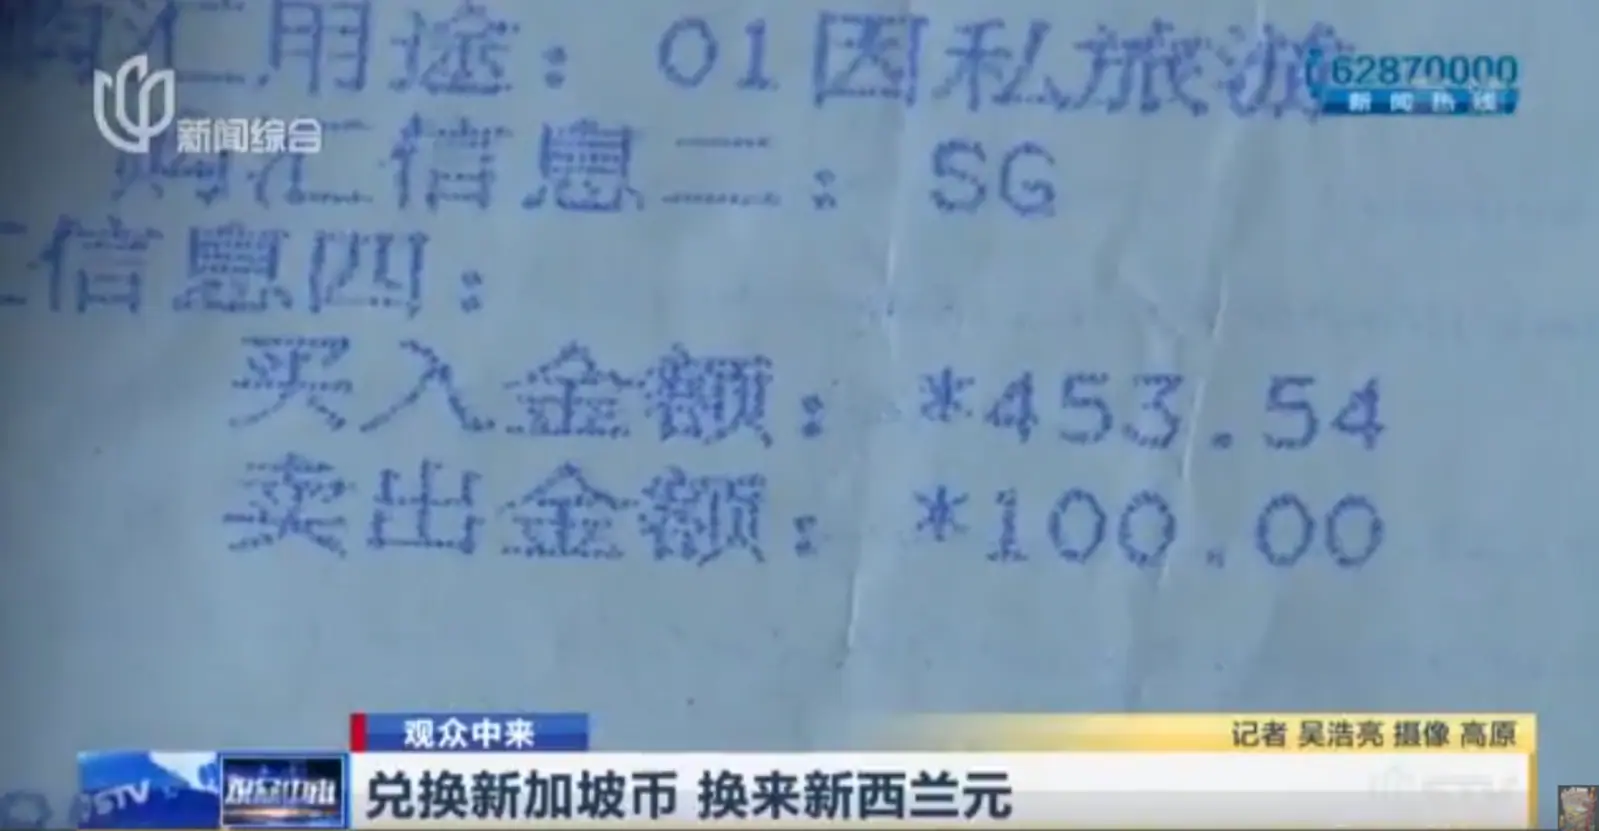 购汇用途：01因私旅游
62870000
新闻热线
新闻综合
购汇信息二：SG
汇信息四：
买入金额：*453.54
卖出金额：*100.00
观众中来
记者 吴浩亮 摄像 高原
STV
兑换新加坡币 换来新西兰元